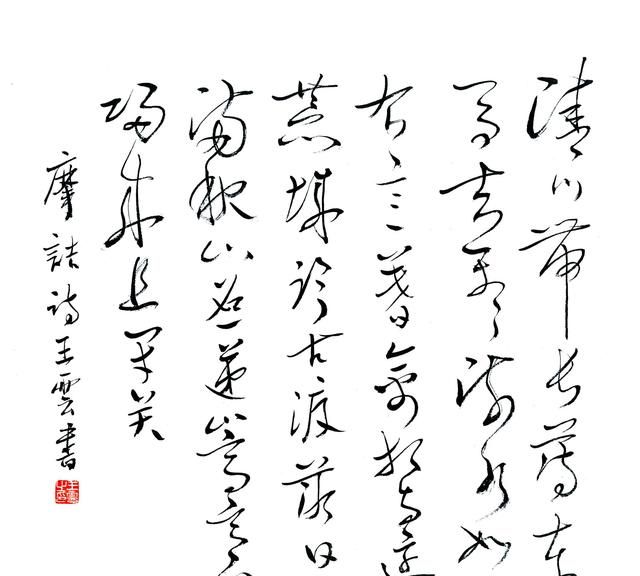 清川帶長薄車
馬去閑閑流水如
有意暮禽相與還
荒城臨古渡落日
滿秋山迢遞嵩高下
歸來且閉關
摩詰詩王雲書